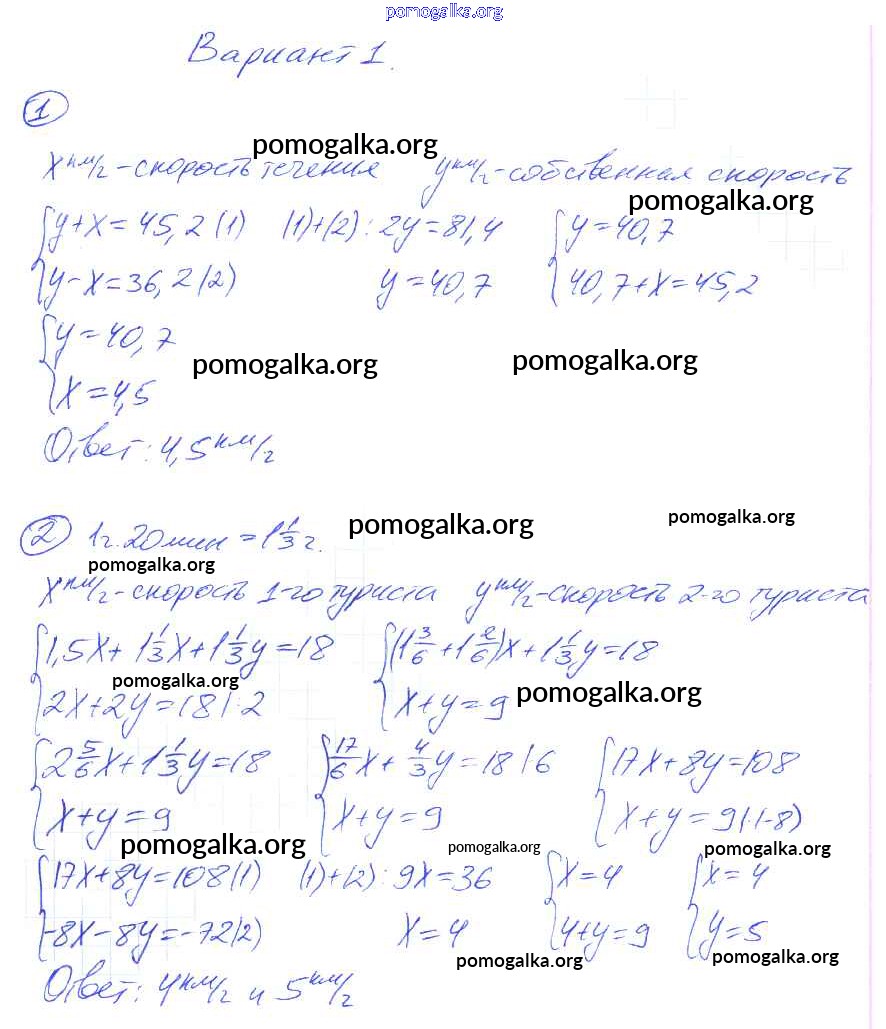 pomogalka.org
Вариант 1.
1
pomogalka.org
x км/г - скорость течения y км/г - собственная скорость
pomogalka.org
{ y+x=45,2 (1) (1)+(2): 2y=81,4 { y=40,7
{ y-x=36,2 (2) y=40,7 { 40,7+x=45,2
{ y=40,7
pomogalka.org pomogalka.org
{ x=4,5
Ответ: 4,5 км/г
2 1г. 20 мин = 1 1/3 г.
pomogalka.org pomogalka.org
pomogalka.org
x км/г - скорость 1-го туриста y км/г - скорость 2-го туриста
{ 1,5x + 1 1/3 x + 1 1/3 y = 18 { (1 3/6 + 1 2/6)x + 1 1/3 y = 18
pomogalka.org pomogalka.org
{ 2x+2y=18 |:2 { x+y=9
{ 2 5/6 x + 1 1/3 y = 18 { 17/6 x + 4/3 y = 18 |6 { 17x+8y=108
{ x+y=9 { x+y=9 { x+y=9 |·(-8)
pomogalka.org pomogalka.org pomogalka.org
{ 17x+8y=108 (1) (1)+(2): 9x=36 { x=4 { x=4
{ -8x-8y=-72 (2) x=4 { 4+y=9 { y=5
pomogalka.org pomogalka.org
Ответ: 4 км/г и 5 км/г